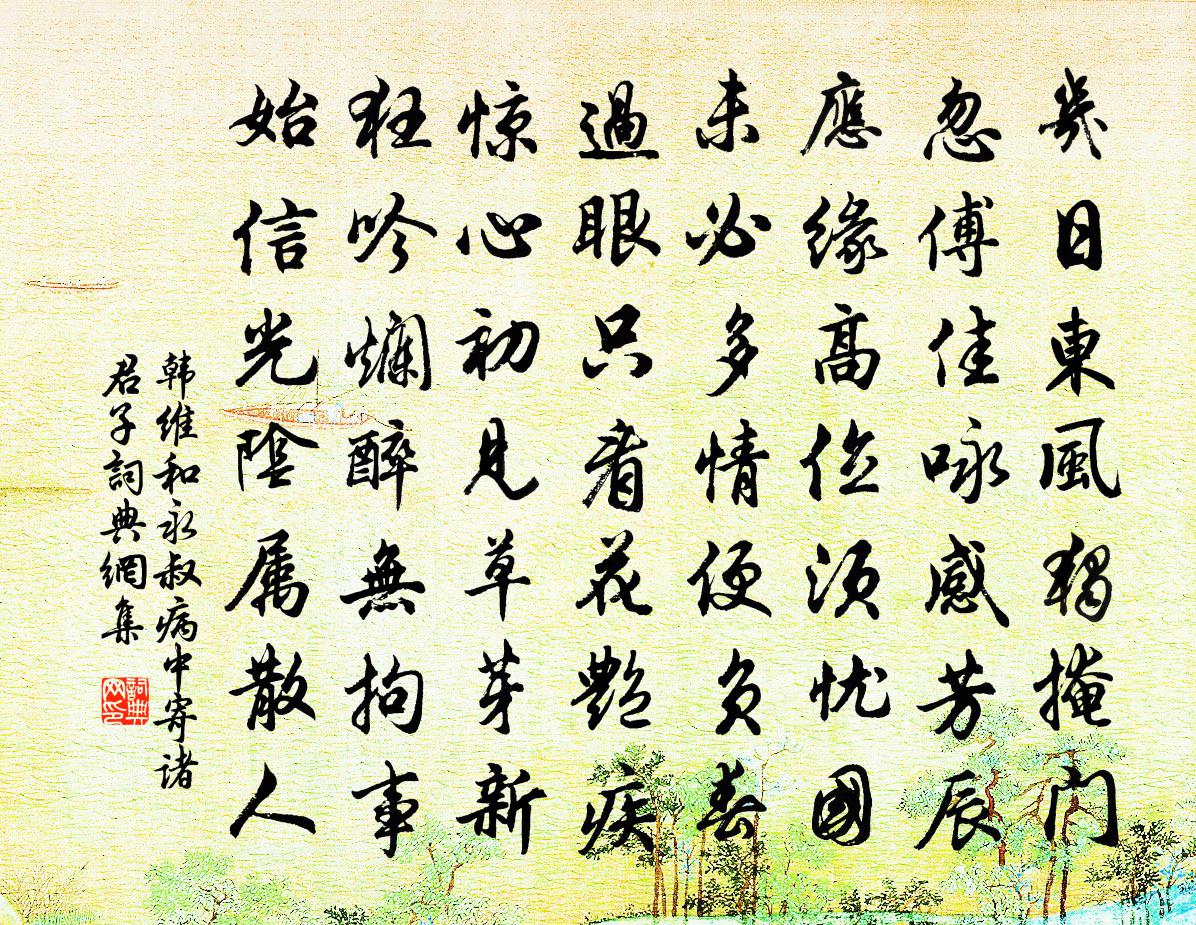 幾日東風獨掩門
忽傅佳咏感芳辰
應緣高位須忧國
未必多情便負春
過眼只看花艷疾
惊心初見草芽新
狂吟爛醉無拘事
始信光陰属散人
韩维和永叔病中寄诸
君子詞典網集
詞典
网印